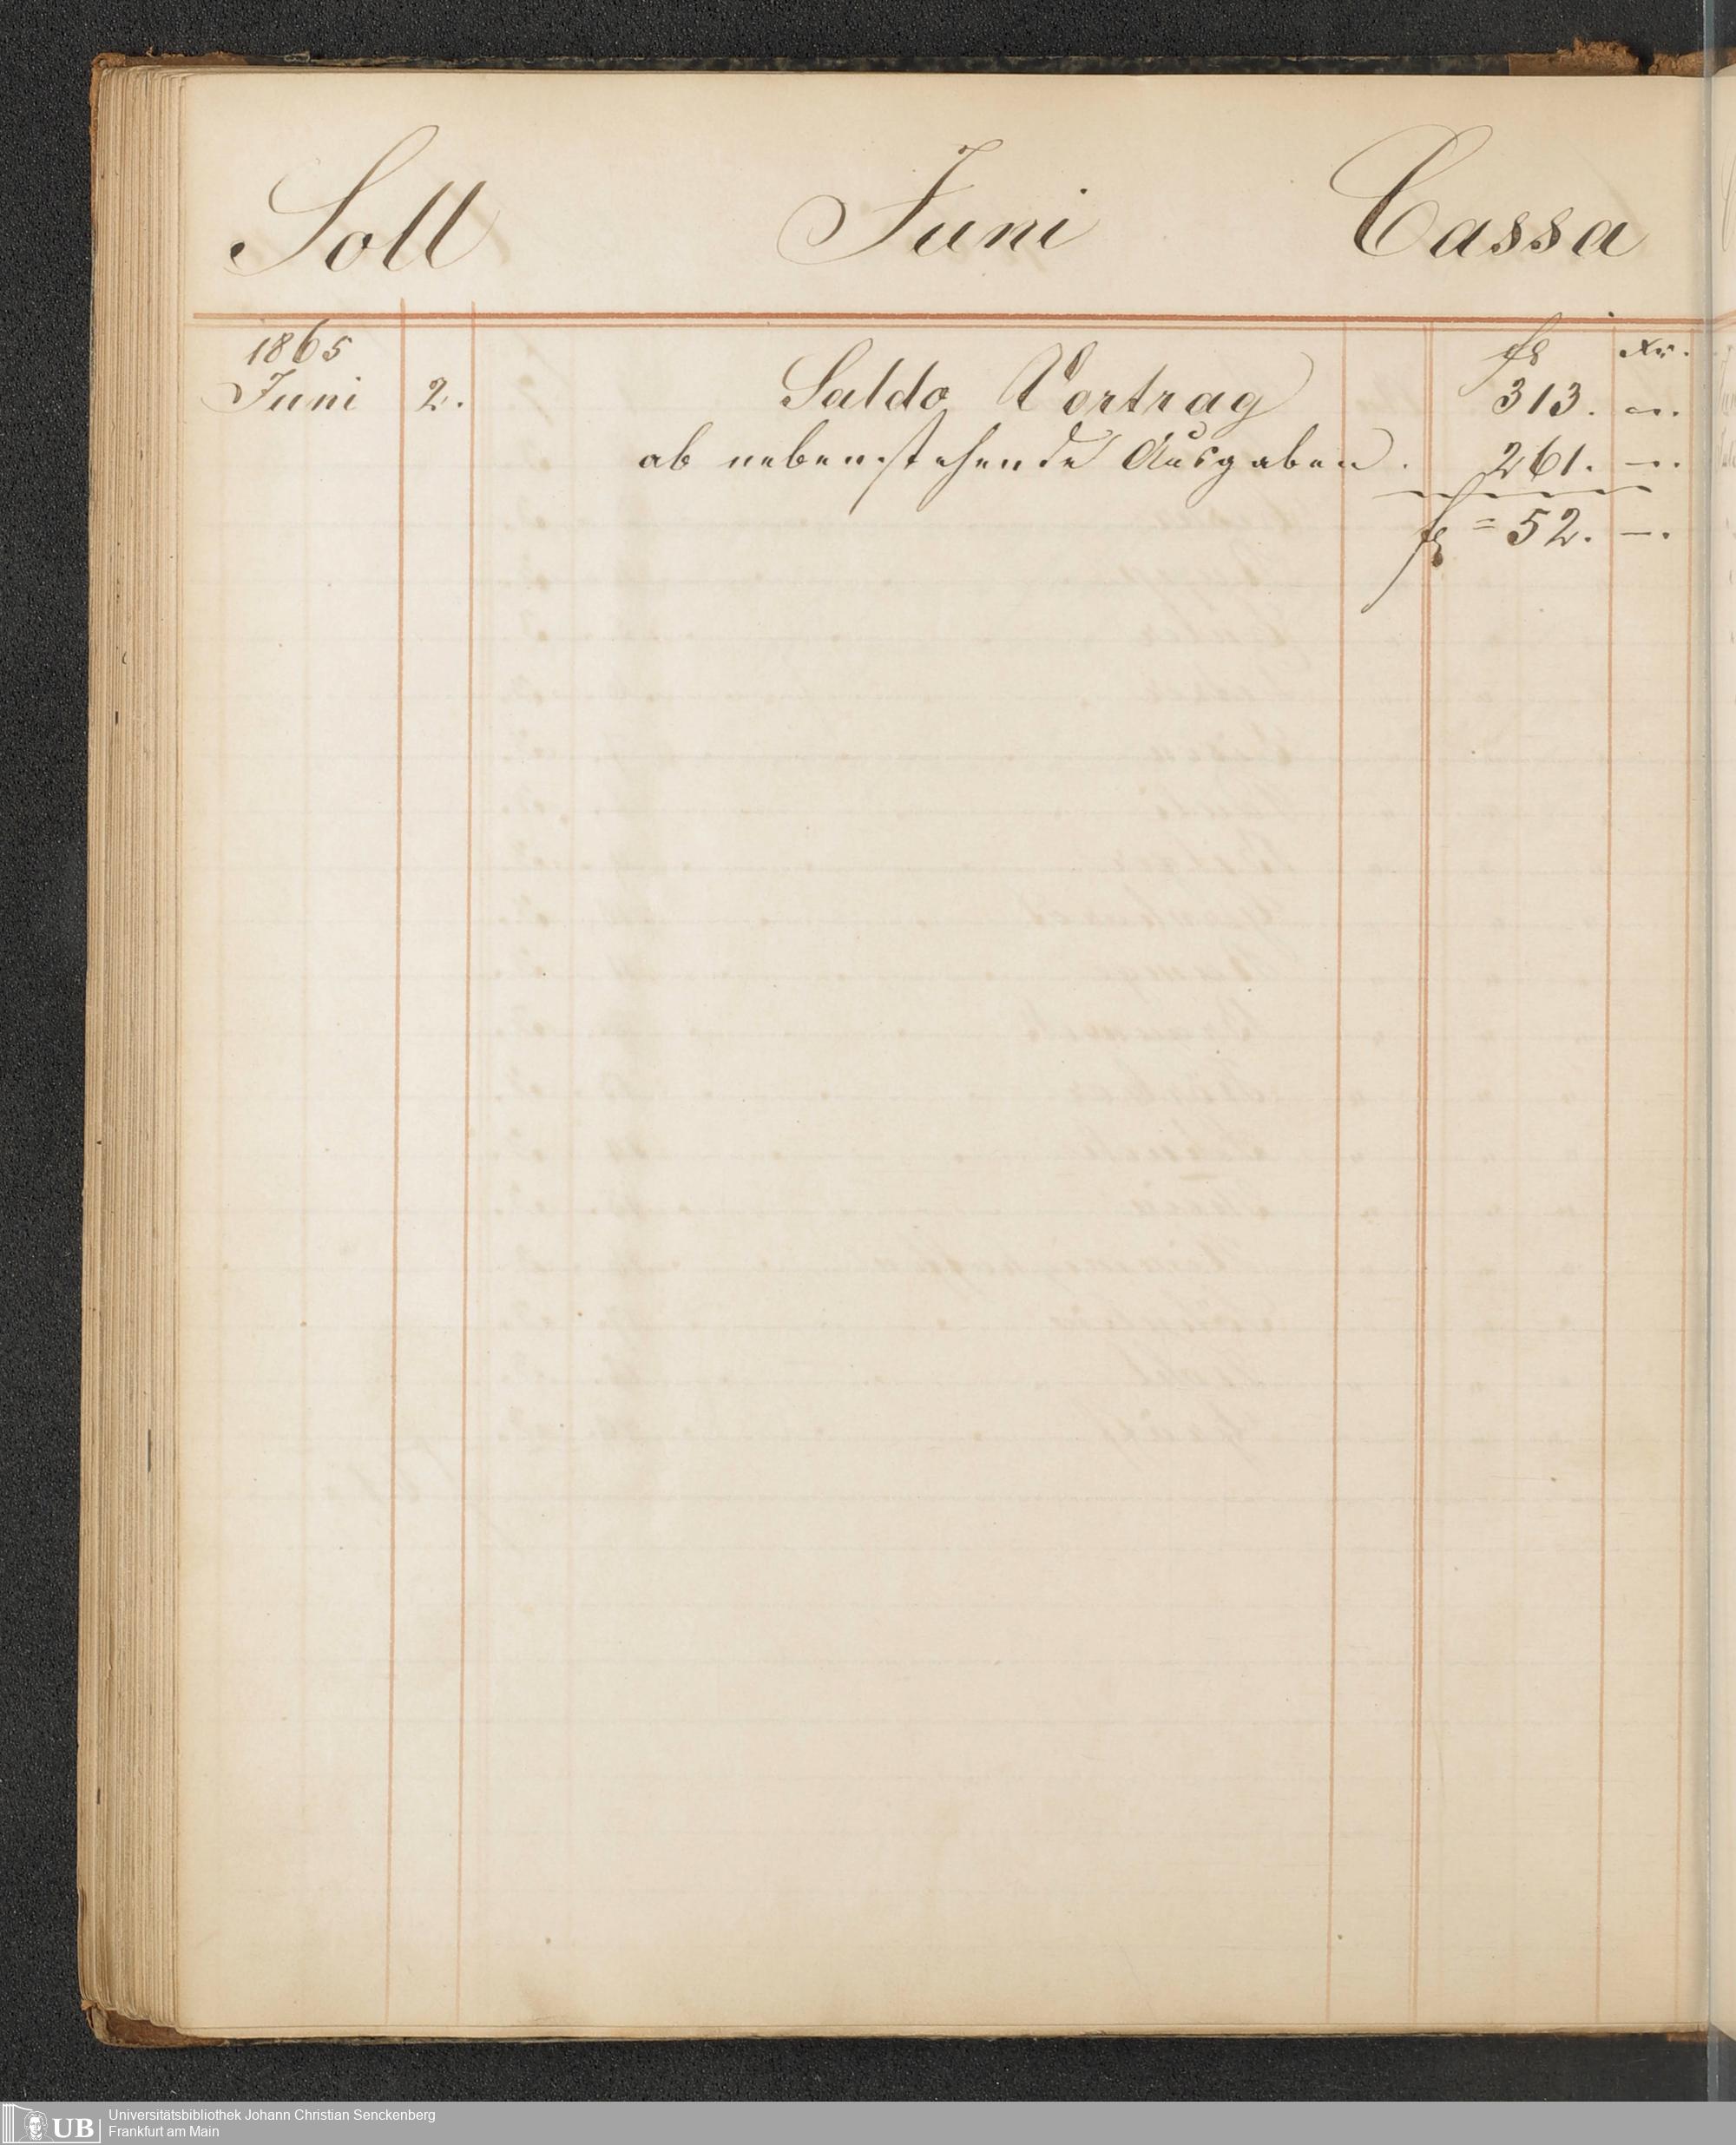 Soll Juni Cassa
1865 fl xr.
Juni 2. Saldo Vortrag 313. —.
ab nebenstehende Ausgaben. 261. —.
fl = 52. —.
UB Universitätsbibliothek Johann Christian Senckenberg
Frankfurt am Main